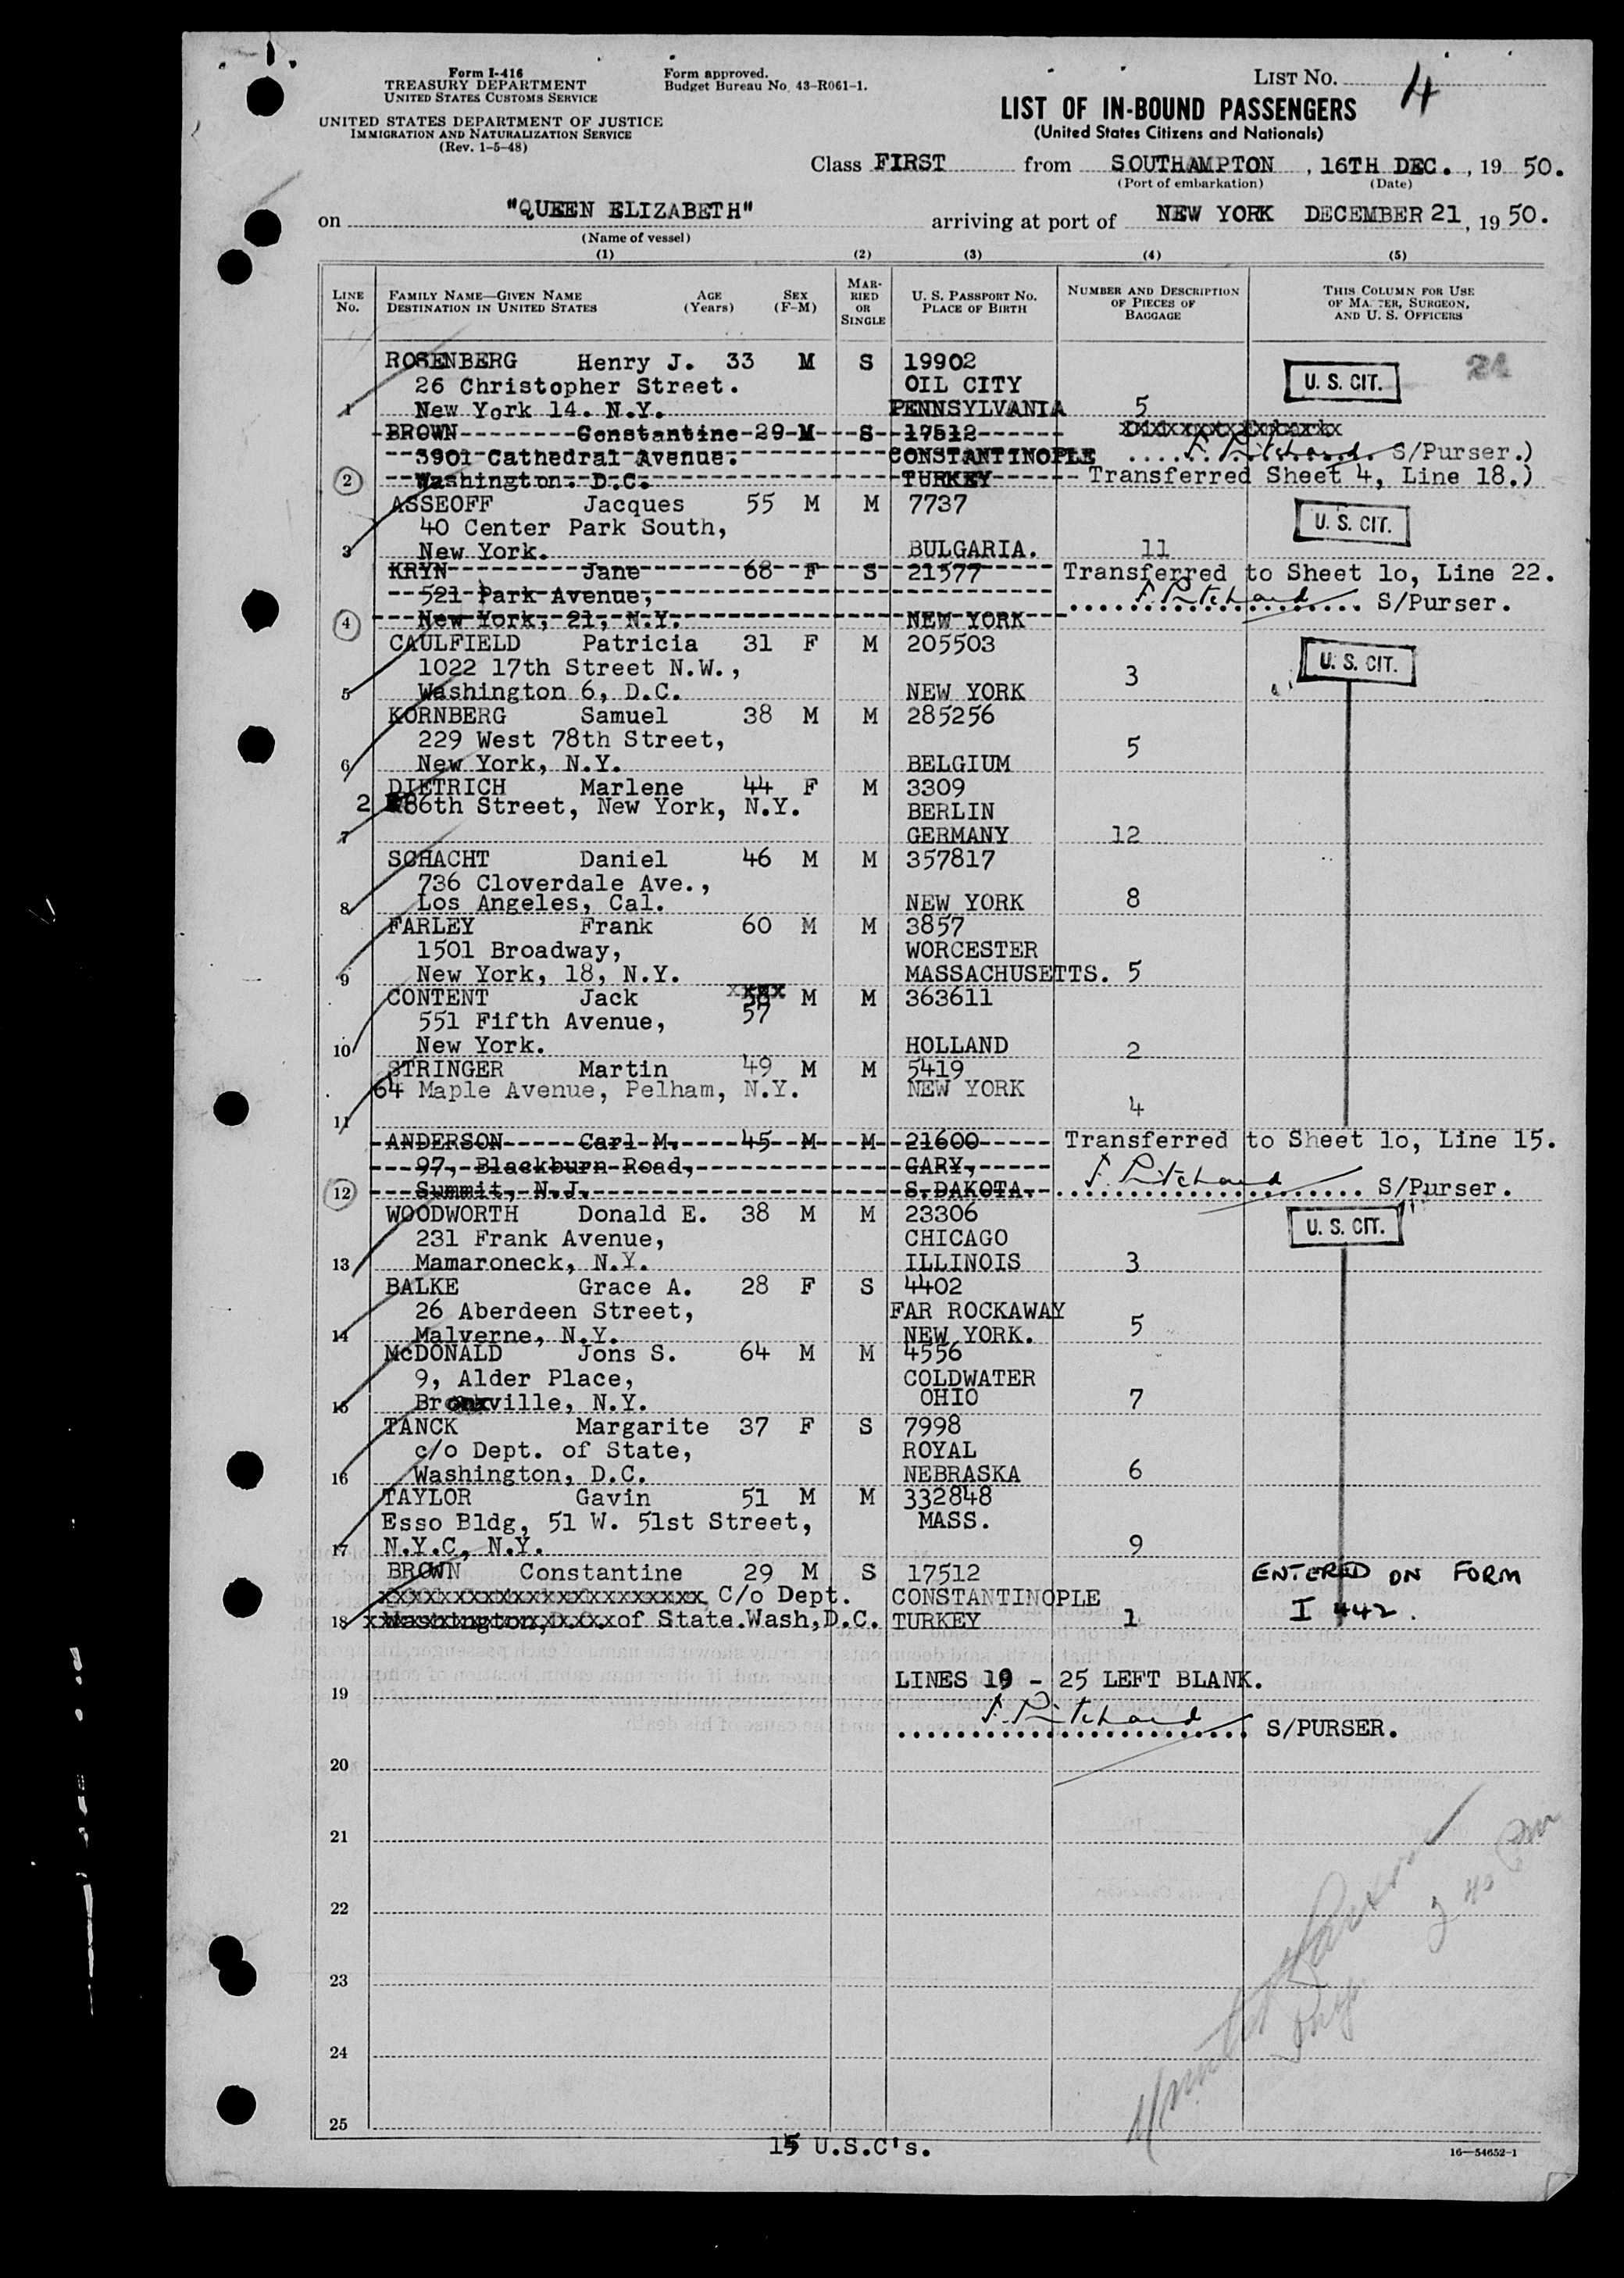 Form I-416
TREASURY DEPARTMENT
UNITED STATES CUSTOMS SERVICE
UNITED STATES DEPARTMENT OF JUSTICE
IMMIGRATION AND NATURALIZATION SERVICE
(Rev. 1-5-48)
Form approved.
Budget Bureau No. 43-R061-1.
LIST No. 4
LIST OF IN-BOUND PASSENGERS
(United States Citizens and Nationals)
Class FIRST from SOUTHAMPTON, 16TH DEC., 19 50.
(Port of embarkation) (Date)
on "QUEEN ELIZABETH" arriving at port of NEW YORK DECEMBER 21, 19 50.
(Name of vessel)
(1) (2) (3) (4) (5)
LINE No.
FAMILY NAME—GIVEN NAME
DESTINATION IN UNITED STATES
AGE (Years)
SEX (F-M)
MARRIED OR SINGLE
U. S. PASSPORT No.
PLACE OF BIRTH
NUMBER AND DESCRIPTION OF PIECES OF BAGGAGE
THIS COLUMN FOR USE OF MASTER, SURGEON, AND U. S. OFFICERS
ROSENBERG Henry J. 33 M S 19902 U. S. CIT. 21
26 Christopher Street. OIL CITY
1 New York 14. N.Y. PENNSYLVANIA 5
BROWN Constantine 29 M S 17512
3901 Cathedral Avenue. CONSTANTINOPLE F. Pritchard S/Purser.)
2 Washington. D.C. TURKEY Transferred Sheet 4, Line 18.)
ASSEOFF Jacques 55 M M 7737 U. S. CIT.
40 Center Park South,
3 New York. BULGARIA. 11
KRYN Jane 68 F S 21577 Transferred to Sheet 1o, Line 22.
521 Park Avenue, F. Pritchard S/Purser.
4 New York, 21, N.Y. NEW YORK
CAULFIELD Patricia 31 F M 205503 U. S. CIT.
1022 17th Street N.W., 3
5 Washington 6, D.C. NEW YORK
KORNBERG Samuel 38 M M 285256
229 West 78th Street, 5
6 New York, N.Y. BELGIUM
DIETRICH Marlene 44 F M 3309
2 86th Street, New York, N.Y. BERLIN
7 GERMANY 12
SCHACHT Daniel 46 M M 357817
736 Cloverdale Ave.,
8 Los Angeles, Cal. NEW YORK 8
FARLEY Frank 60 M M 3857
1501 Broadway, WORCESTER
9 New York, 18, N.Y. MASSACHUSETTS. 5
CONTENT Jack M M 363611
551 Fifth Avenue, 57
10 New York. HOLLAND 2
STRINGER Martin 49 M M 5419
64 Maple Avenue, Pelham, N.Y. NEW YORK
11 4
ANDERSON Carl M. 45 M M 21600 Transferred to Sheet 1o, Line 15.
97, Blackburn Road, GARY,
12 Summit, N.J. S.DAKOTA. F. Pritchard S/Purser.
WOODWORTH Donald E. 38 M M 23306 U. S. CIT.
231 Frank Avenue, CHICAGO
13 Mamaroneck, N.Y. ILLINOIS 3
BALKE Grace A. 28 F S 4402
26 Aberdeen Street, FAR ROCKAWAY
14 Malverne, N.Y. NEW YORK. 5
McDONALD Jons S. 64 M M 4556
9, Alder Place, COLDWATER
15 Bronxville, N.Y. OHIO 7
TANCK Margarite 37 F S 7998
c/o Dept. of State, ROYAL
16 Washington, D.C. NEBRASKA 6
TAYLOR Gavin 51 M M 332848
Esso Bldg, 51 W. 51st Street, MASS.
17 N.Y.C, N.Y. 9
BROWN Constantine 29 M S 17512 ENTERED ON FORM
xxxxxxxxxxxxxxxxxxxxxx C/o Dept. CONSTANTINOPLE I 442.
18 Washington, D.C. of State.Wash,D.C. TURKEY 1
LINES 19 - 25 LEFT BLANK.
19
F. Pritchard S/PURSER.
20
21
22
23
24
25
15 U.S.C's.
16—54652-1